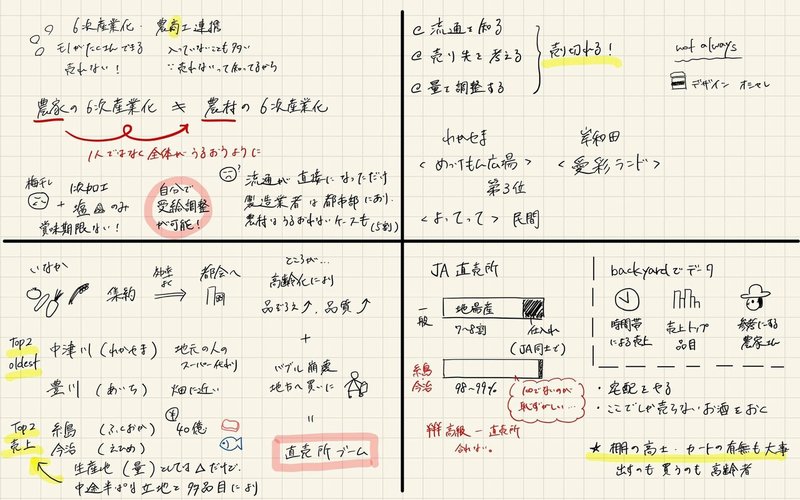 6次産業化・農商工連携
モノがたくさんできる
売れない！
入っていないことも多い
∵売れないって知ってるから
農家の6次産業化 ≠ 農村の6次産業化
1人ではなく全体がうるおうように
梅干し 1次加工
+ 塩のみ
賞味期限ない！
自分で
受給調整
が可能！
流通が直接になっただけ
製造業者は都市部にあり、
農村はうるおわないケースも(5割)
@ 流通を知る
@ 売り先を考える
@ 量を調整する
売り切れる！
not always
デザイン オシャレ
わかやま
<めっけもん広場>
第3位
岸和田
<愛彩ランド>
<よってって> 民間
いなか
集約
都会へ
ところが…
高齢化により
品ぞろえ↑、品質↑
+
バブル崩壊
地方へ買いに
=
直売所ブーム
Top2
oldest
中津川 (わかやま) 地元の人の
スーパー代わり
豊川 (あいち) 畑に近い
Top2
売上
糸島 (ふくおか) 40億
今治 (えひめ)
生産地(量)としては△だけど、
中途半ぱな立地で多品目により
JA 直売所
一般
地場産
7~8割
仕入れ
(JA同士で)
糸島
今治
98~99%
100でないのが
恥ずかしい…
高級 ― 直売所
合わない。
backyardでデータ
時間帯
による売上
売上トップ
品目
参考にする
農家さん
・宅配をやる
・ここでしか売らないお酒をおく
★ 棚の高さ・カートの有無も大事
出すのも買うのも高齢者